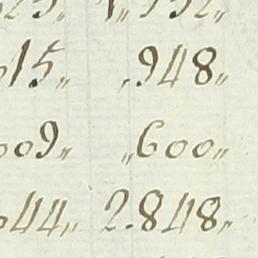 015〃 〃948〃
009〃 〃600〃
044〃 2.848〃